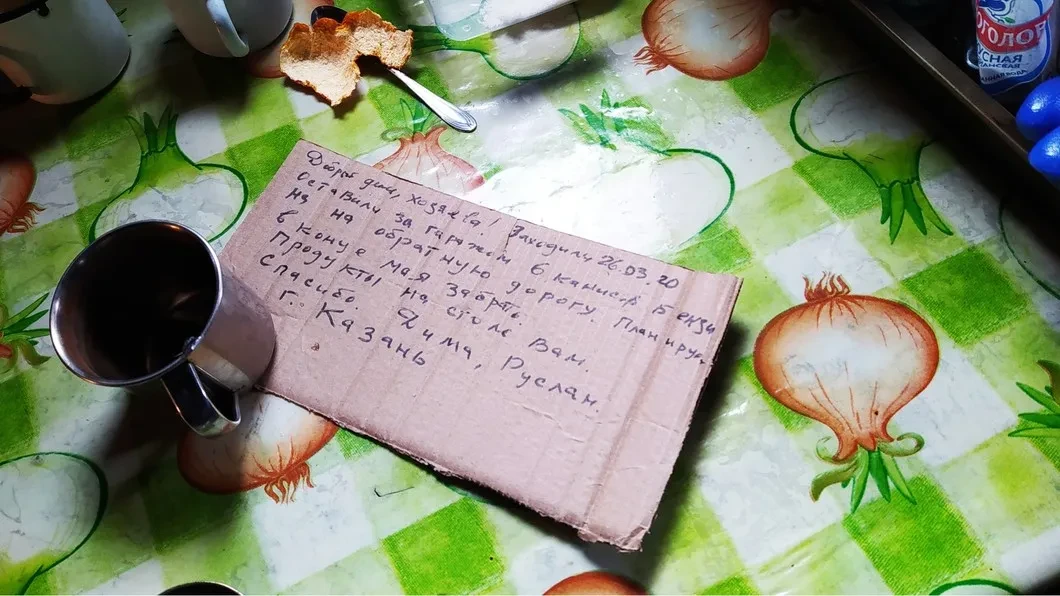 Добрый день, хозяева! Заходили 26.03.20
оставили за гаражом 6 канистр Бензи
на на обратную дорогу. Планируем
в конце мая забрать.
Продукты на столе Вам.
Спасибо. Дима, Руслан.
г. Казань